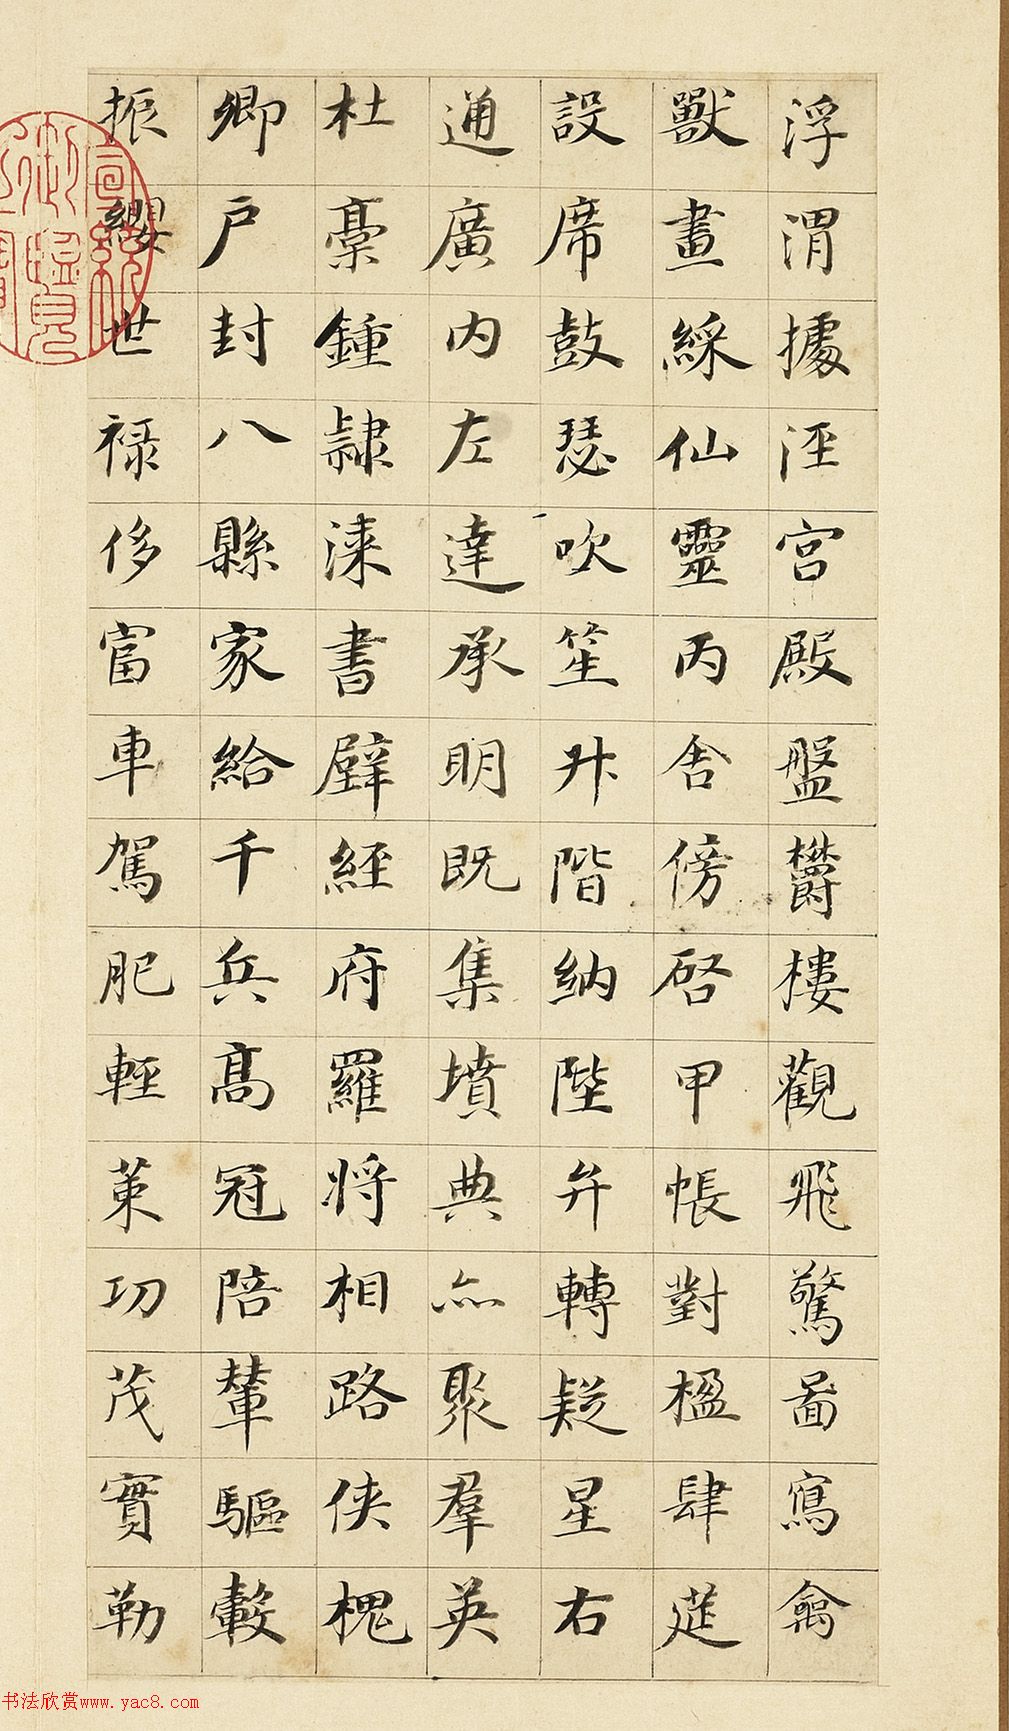 浮渭據涇宮殿盤欝樓觀飛驚啚寫禽
獸畫綵仙靈丙舍傍啓甲帳對楹肆莚
設席鼓瑟吹笙升階納陛弁轉疑星右
通廣內左達承明既集墳典亦聚羣英
杜稾鍾隷漆書壁經府羅將相路俠槐
卿戶封八縣家給千兵高冠陪輦驅轂
振纓世禄侈富車駕肥輕策功茂實勒
宣統御覽之寶
书法欣赏www.yac8.com